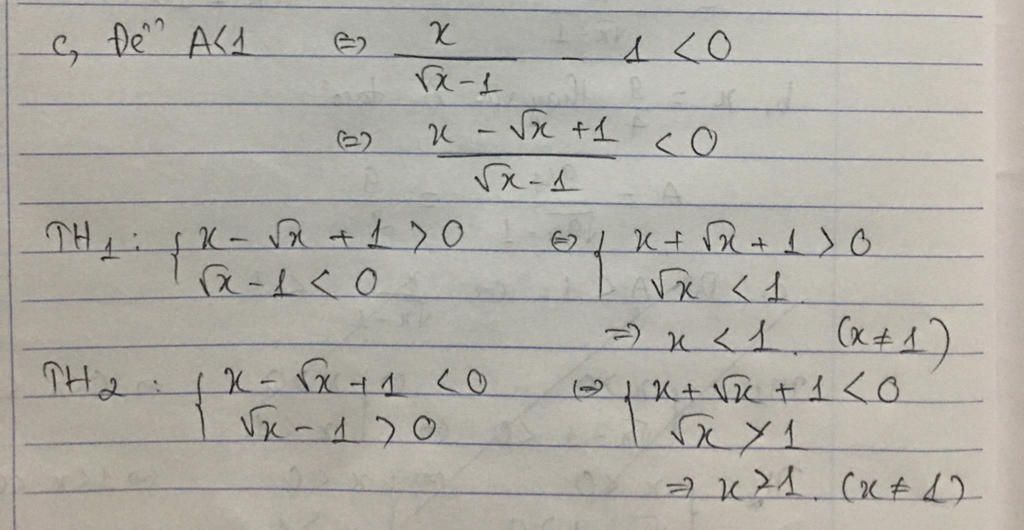 c, Để A<1 ⇔ x/(√x-1) - 1 < 0
⇔ (x - √x + 1)/(√x-1) < 0
TH1: { x - √x + 1 > 0 ⇔ { x + √x + 1 > 0
√x - 1 < 0 √x < 1.
⇒ x < 1. (x ≠ 1)
TH2: { x - √x + 1 < 0 ⇔ { x + √x + 1 < 0
√x - 1 > 0 √x > 1
⇒ x > 1. (x ≠ 1)